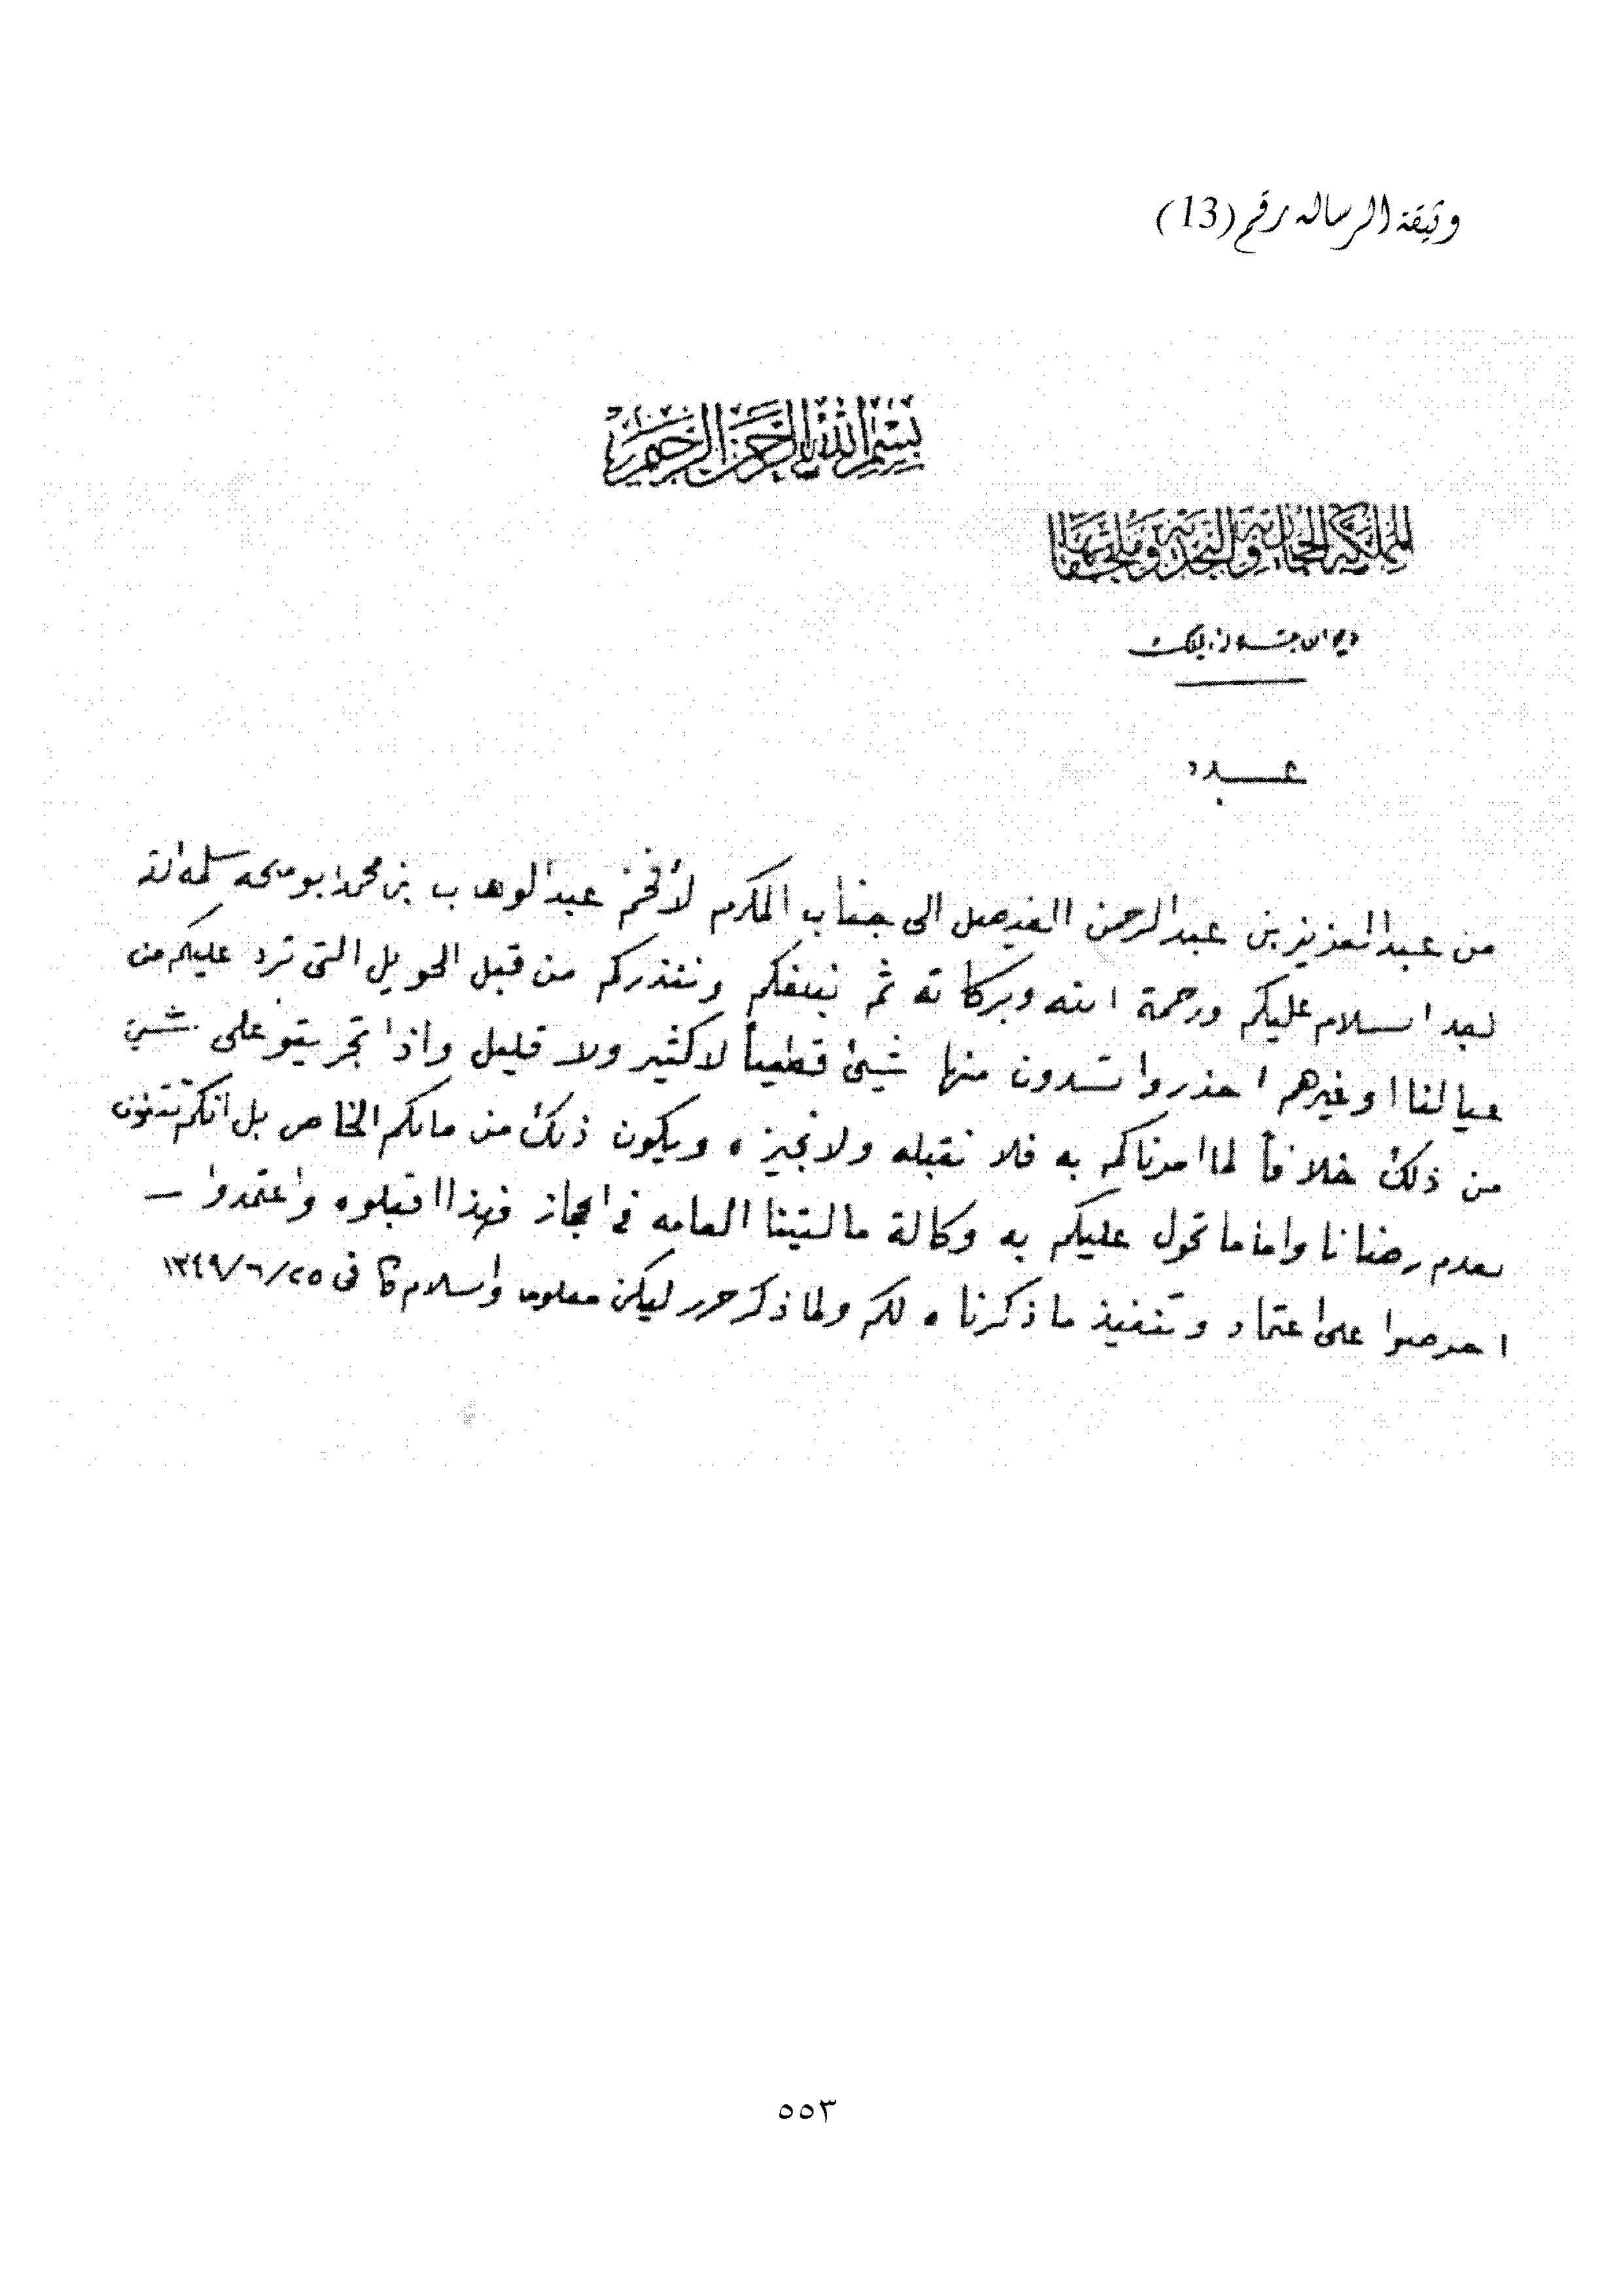 وثيقة الرساله رقم (13)
بسم الله الرحمن الرحيم
المملكة الحجازية والنجدية وملحقاتها
ديوان جلالة الملك
عدد
من عبد العزيز بن عبد الرحمن الفيصل الى جناب المكرم لأفخم عبد الوهاب بن محمد ابو ملحه سلمه الله
بعد السلام عليكم ورحمة الله وبركاته ثم نبلغكم وننذركم من قبل الحويل التى ترد عليكم من
عيالنا او غيرهم احذروا تسدون منها شيئ قطعياً لا كثير ولا قليل واذا تجريتو على شيئ
من ذلك خلافاً لما امرناكم به فلا نقبله ولا نجيزه ويكون ذلك من مالكم الخاص بل انكم تثقون
بعدم رضانا واما ما تحول عليكم به وكالة ماليتنا العامه فى الحجاز فهذا اقبلوه واعتمدوا –
احرصوا على اعتماد وتنفيذ ما ذكرناه لكم ولما ذكر حرر ليكن معلوما والسلام فى ١٣٤٩/٦/٢٥
٥٥٣